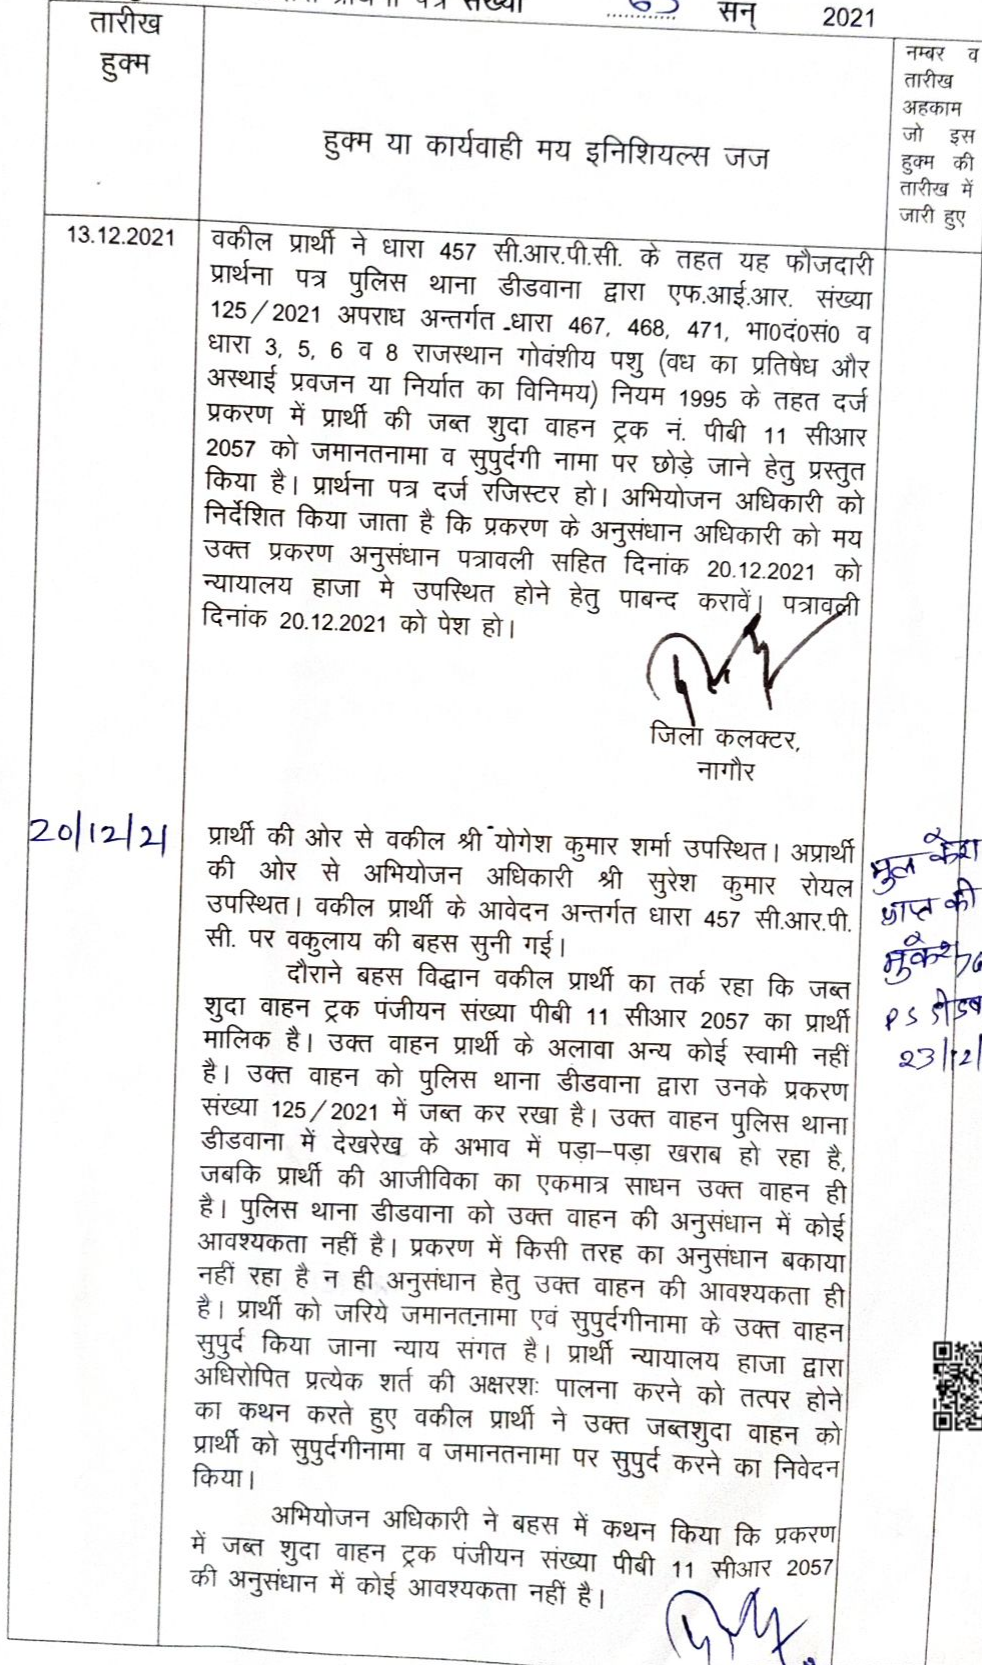 प्रार्थना पत्र संख्या 63 सन् 2021
तारीख
हुक्म
हुक्म या कार्यवाही मय इनिशियल्स जज
नम्बर व
तारीख
अहकाम
जो इस
हुक्म की
तारीख में
जारी हुए
13.12.2021
वकील प्रार्थी ने धारा 457 सी.आर.पी.सी. के तहत यह फौजदारी
प्रार्थना पत्र पुलिस थाना डीडवाना द्वारा एफ.आई.आर. संख्या
125/2021 अपराध अन्तर्गत धारा 467, 468, 471, भा0दं0सं0 व
धारा 3, 5, 6 व 8 राजस्थान गोवंशीय पशु (वध का प्रतिषेध और
अस्थाई प्रवजन या निर्यात का विनिमय) नियम 1995 के तहत दर्ज
प्रकरण में प्रार्थी की जब्त शुदा वाहन ट्रक नं. पीबी 11 सीआर
2057 को जमानतनामा व सुपुर्दगी नामा पर छोड़े जाने हेतु प्रस्तुत
किया है। प्रार्थना पत्र दर्ज रजिस्टर हो। अभियोजन अधिकारी को
निर्देशित किया जाता है कि प्रकरण के अनुसंधान अधिकारी को मय
उक्त प्रकरण अनुसंधान पत्रावली सहित दिनांक 20.12.2021 को
न्यायालय हाजा मे उपस्थित होने हेतु पाबन्द करावें। पत्रावली
दिनांक 20.12.2021 को पेश हो।
जिला कलक्टर,
नागौर
20/12/21
प्रार्थी की ओर से वकील श्री योगेश कुमार शर्मा उपस्थित। अप्रार्थी
की ओर से अभियोजन अधिकारी श्री सुरेश कुमार रोयल
उपस्थित। वकील प्रार्थी के आवेदन अन्तर्गत धारा 457 सी.आर.पी.
सी. पर वकुलाय की बहस सुनी गई।
दौराने बहस विद्वान वकील प्रार्थी का तर्क रहा कि जब्त
शुदा वाहन ट्रक पंजीयन संख्या पीबी 11 सीआर 2057 का प्रार्थी
मालिक है। उक्त वाहन प्रार्थी के अलावा अन्य कोई स्वामी नहीं
है। उक्त वाहन को पुलिस थाना डीडवाना द्वारा उनके प्रकरण
संख्या 125/2021 में जब्त कर रखा है। उक्त वाहन पुलिस थाना
डीडवाना में देखरेख के अभाव में पड़ा–पड़ा खराब हो रहा है,
जबकि प्रार्थी की आजीविका का एकमात्र साधन उक्त वाहन ही
है। पुलिस थाना डीडवाना को उक्त वाहन की अनुसंधान में कोई
आवश्यकता नहीं है। प्रकरण में किसी तरह का अनुसंधान बकाया
नहीं रहा है न ही अनुसंधान हेतु उक्त वाहन की आवश्यकता ही
है। प्रार्थी को जरिये जमानतनामा एवं सुपुर्दगीनामा के उक्त वाहन
सुपुर्द किया जाना न्याय संगत है। प्रार्थी न्यायालय हाजा द्वारा
अधिरोपित प्रत्येक शर्त की अक्षरशः पालना करने को तत्पर होने
का कथन करते हुए वकील प्रार्थी ने उक्त जब्तशुदा वाहन को
प्रार्थी को सुपुर्दगीनामा व जमानतनामा पर सुपुर्द करने का निवेदन
किया।
अभियोजन अधिकारी ने बहस में कथन किया कि प्रकरण
में जब्त शुदा वाहन ट्रक पंजीयन संख्या पीबी 11 सीआर 2057
की अनुसंधान में कोई आवश्यकता नहीं है।
मुल
प्राप्त की
मुकेश
PS
23/12/